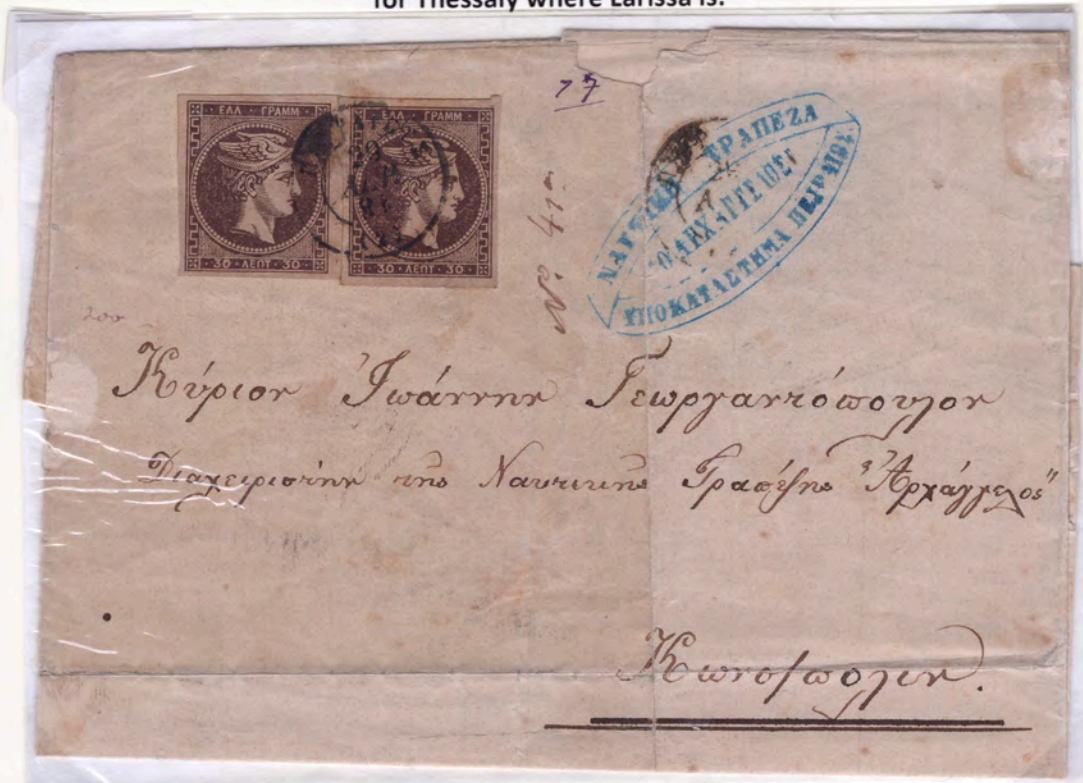 for Thessaly where Larissa is.
77
ΕΛΛ · ΓΡΑΜΜ
30 · ΛΕΠΤ · 30
ΕΛΛ · ΓΡΑΜΜ
30 · ΛΕΠΤ · 30
ΝΑΥΤΙΚΗ ΤΡΑΠΕΖΑ
Ο ΑΡΧΑΓΓΕΛΟΣ
ΥΠΟΚΑΤΑΣΤΗΜΑ ΠΕΙΡΑΙΩΣ
200
Κύριον Ἰωάννην Γεωργαντόπουλον
Διαχειριστὴν τῆς Ναυτικῆς Τραπέζης "Ἀρχάγγελος"
Κωνσ/πολιν.